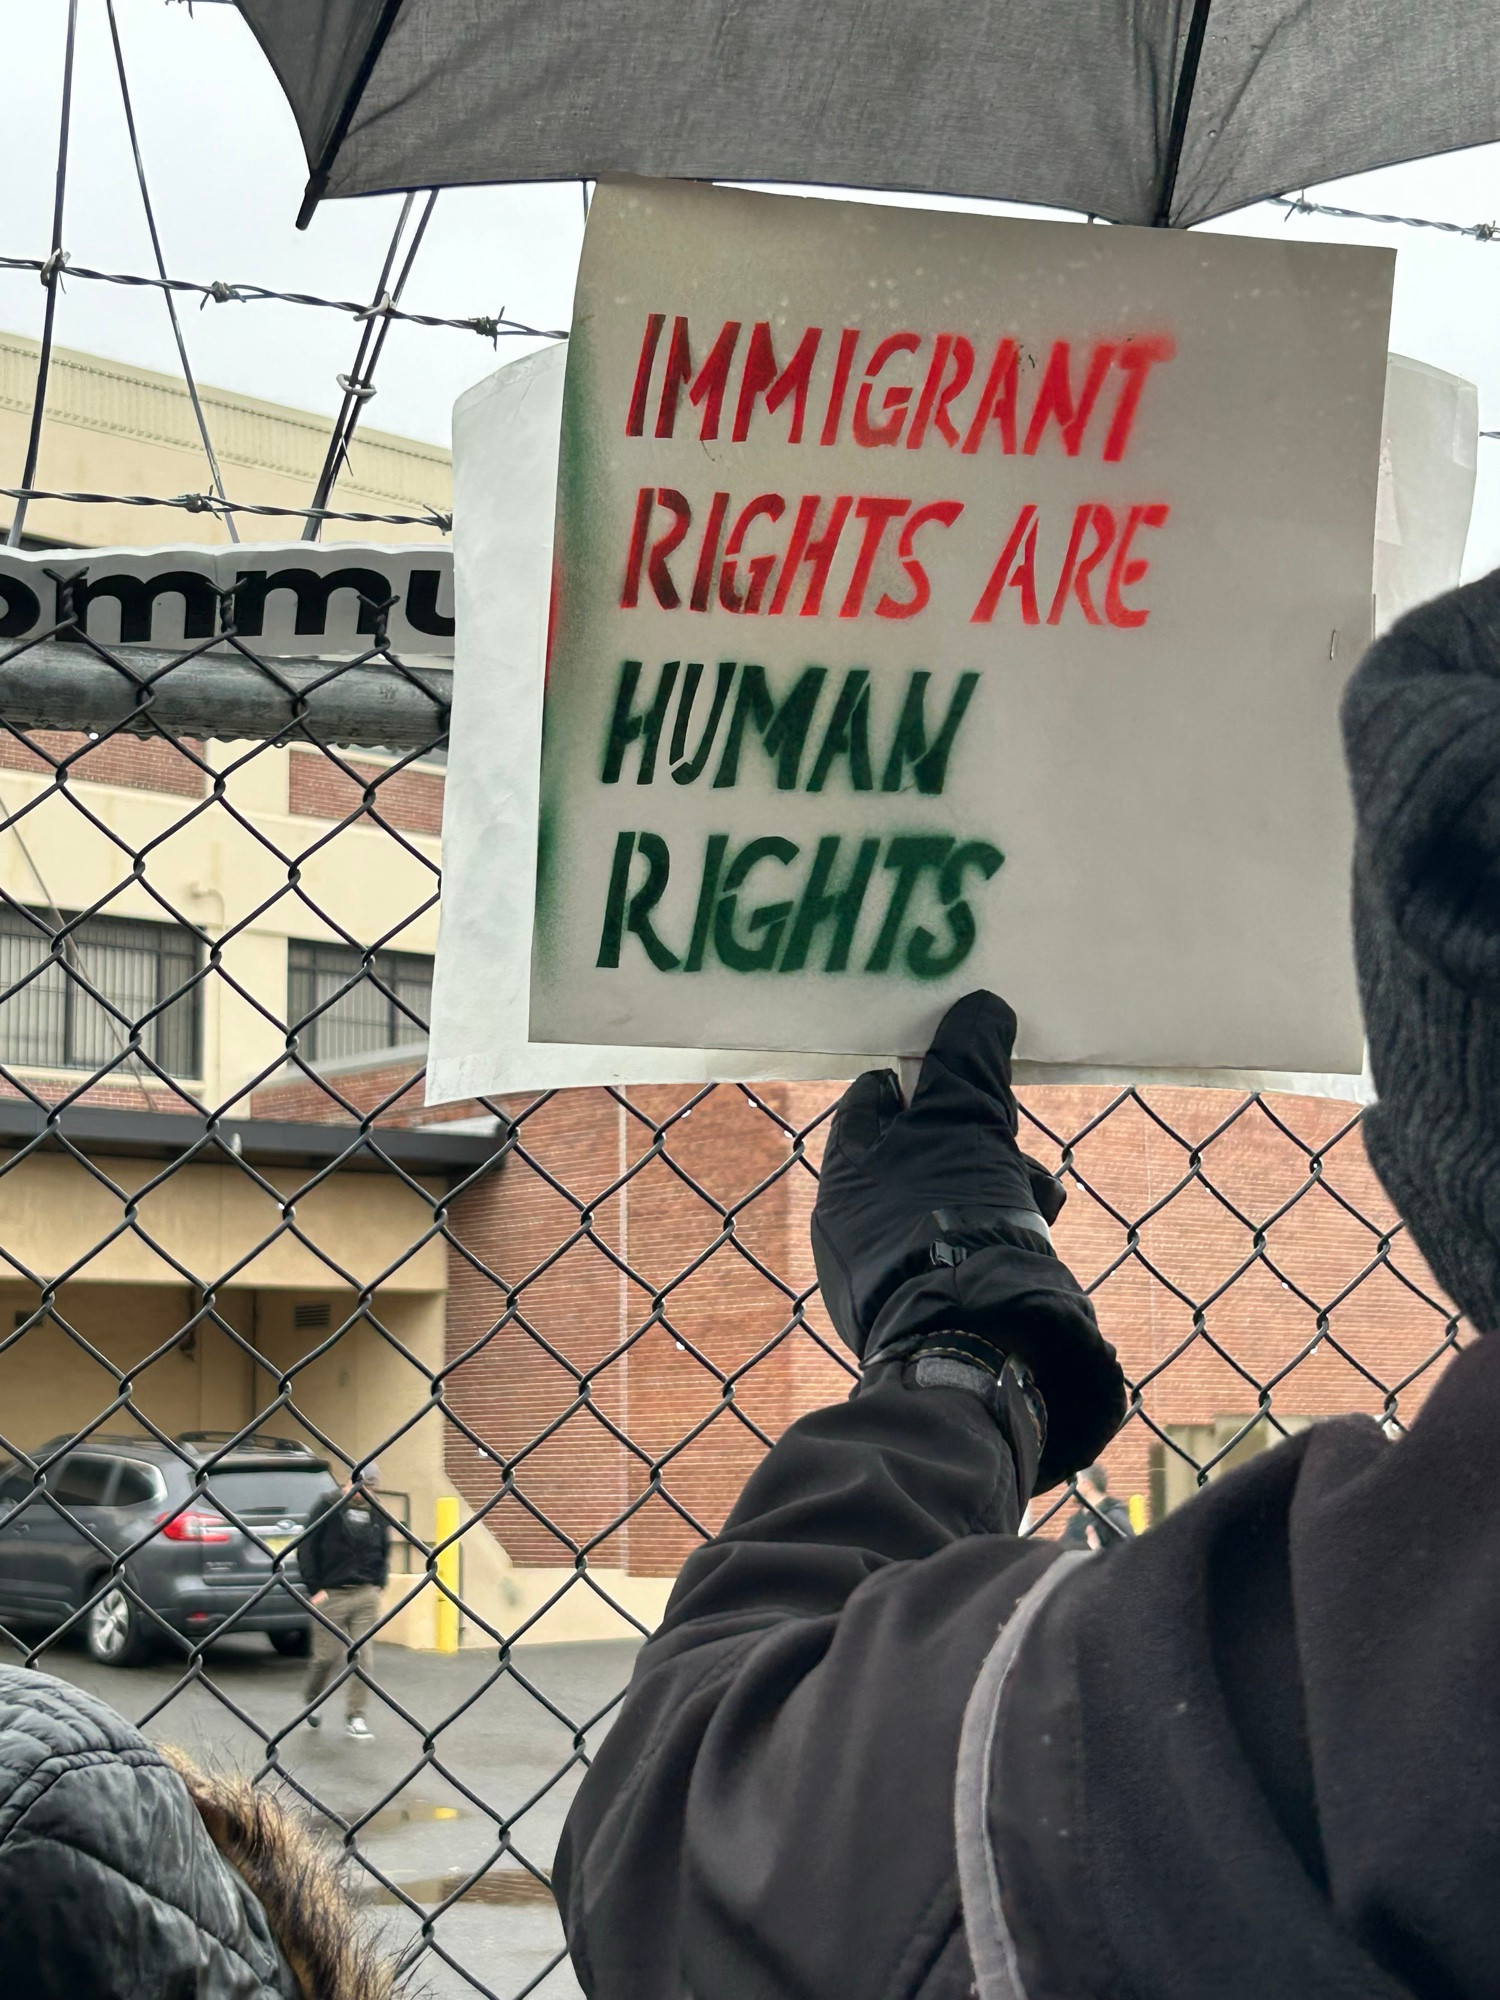 IMMIGRANT
RIGHTS ARE
HUMAN
RIGHTS
ommu